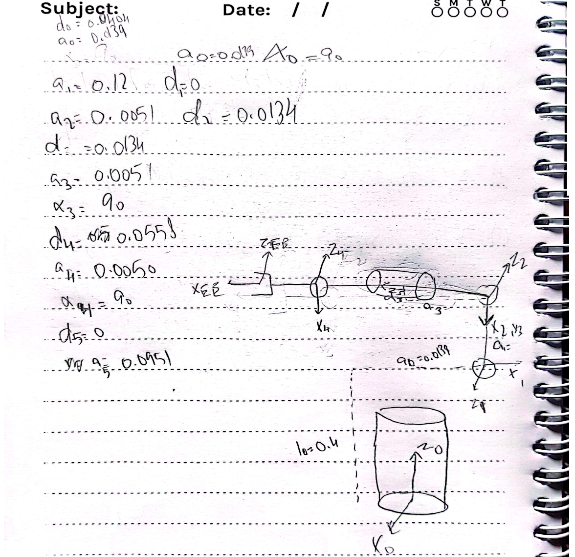 Subject:
Date: / /
S M T W T
d₀ = 0.0404
a₀ = 0.039
a₀=0.039 α₀ = 90
a₁ = 0.12 d₁=0
a₂ = 0.0051 d₂ = 0.0134
d =0.0134
a₃ = 0.0051
α₃ = 90
d₄ = 0.0553
a₄ = 0.0050
α₄ = 90
d₅ = 0
a₅ = 0.0951
ZEE
XEE
Z₄
X₄
a₃
Z₂
X₂
a₀=0.039
X₁
Z₁
l₀=0.4
Z₀
X₀